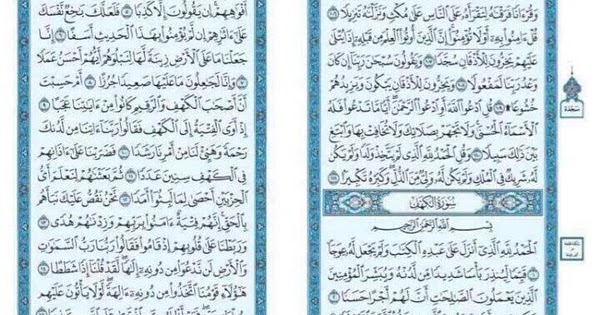 وَقُرْءَانًا فَرَقْنَٰهُ لِتَقْرَأَهُۥ عَلَى ٱلنَّاسِ عَلَىٰ مُكْثٍ وَنَزَّلْنَٰهُ تَنزِيلًا ١٠٦
قُلْ ءَامِنُوا۟ بِهِۦٓ أَوْ لَا تُؤْمِنُوٓا۟ إِنَّ ٱلَّذِينَ أُوتُوا۟ ٱلْعِلْمَ مِن قَبْلِهِۦٓ إِذَا يُتْلَىٰ
عَلَيْهِمْ يَخِرُّونَ لِلْأَذْقَانِ سُجَّدًا ١٠٧ وَيَقُولُونَ سُبْحَٰنَ رَبِّنَآ إِن كَانَ
وَعْدُ رَبِّنَا لَمَفْعُولًا ١٠٨ وَيَخِرُّونَ لِلْأَذْقَانِ يَبْكُونَ وَيَزِيدُهُمْ
خُشُوعًا ۩ ١٠٩ قُلِ ٱدْعُوا۟ ٱللَّهَ أَوِ ٱدْعُوا۟ ٱلرَّحْمَٰنَ أَيًّا مَّا تَدْعُوا۟ فَلَهُ
ٱلْأَسْمَآءُ ٱلْحُسْنَىٰ وَلَا تَجْهَرْ بِصَلَاتِكَ وَلَا تُخَافِتْ بِهَا وَٱبْتَغِ
بَيْنَ ذَٰلِكَ سَبِيلًا ١١٠ وَقُلِ ٱلْحَمْدُ لِلَّهِ ٱلَّذِى لَمْ يَتَّخِذْ وَلَدًا وَلَمْ يَكُن
لَّهُۥ شَرِيكٌ فِى ٱلْمُلْكِ وَلَمْ يَكُن لَّهُۥ وَلِىٌّ مِّنَ ٱلذُّلِّ وَكَبِّرْهُ تَكْبِيرًۢا ١١١
سُورَةُ الكَهْفِ
بِسْمِ ٱللَّهِ ٱلرَّحْمَٰنِ ٱلرَّحِيمِ
ٱلْحَمْدُ لِلَّهِ ٱلَّذِىٓ أَنزَلَ عَلَىٰ عَبْدِهِ ٱلْكِتَٰبَ وَلَمْ يَجْعَل لَّهُۥ عِوَجَا
١ قَيِّمًا لِّيُنذِرَ بَأْسًا شَدِيدًا مِّن لَّدُنْهُ وَيُبَشِّرَ ٱلْمُؤْمِنِينَ
ٱلَّذِينَ يَعْمَلُونَ ٱلصَّٰلِحَٰتِ أَنَّ لَهُمْ أَجْرًا حَسَنًا ٢
سجدة
أَفْوَٰهِهِمْ إِن يَقُولُونَ إِلَّا كَذِبًا ٥ فَلَعَلَّكَ بَٰخِعٌ نَّفْسَكَ
عَلَىٰٓ ءَاثَٰرِهِمْ إِن لَّمْ يُؤْمِنُوا۟ بِهَٰذَا ٱلْحَدِيثِ أَسَفًا ٦ إِنَّا
جَعَلْنَا مَا عَلَى ٱلْأَرْضِ زِينَةً لَّهَا لِنَبْلُوَهُمْ أَيُّهُمْ أَحْسَنُ عَمَلًا
٧ وَإِنَّا لَجَٰعِلُونَ مَا عَلَيْهَا صَعِيدًا جُرُزًا ٨ أَمْ حَسِبْتَ
أَنَّ أَصْحَٰبَ ٱلْكَهْفِ وَٱلرَّقِيمِ كَانُوا۟ مِنْ ءَايَٰتِنَا عَجَبًا ٩
إِذْ أَوَى ٱلْفِتْيَةُ إِلَى ٱلْكَهْفِ فَقَالُوا۟ رَبَّنَآ ءَاتِنَا مِن لَّدُنكَ
رَحْمَةً وَهَيِّئْ لَنَا مِنْ أَمْرِنَا رَشَدًا ١٠ فَضَرَبْنَا عَلَىٰٓ ءَاذَانِهِمْ
فِى ٱلْكَهْفِ سِنِينَ عَدَدًا ١١ ثُمَّ بَعَثْنَٰهُمْ لِنَعْلَمَ أَىُّ
ٱلْحِزْبَيْنِ أَحْصَىٰ لِمَا لَبِثُوٓا۟ أَمَدًا ١٢ نَّحْنُ نَقُصُّ عَلَيْكَ نَبَأَهُم
بِٱلْحَقِّ إِنَّهُمْ فِتْيَةٌ ءَامَنُوا۟ بِرَبِّهِمْ وَزِدْنَٰهُمْ هُدًى ١٣
وَرَبَطْنَا عَلَىٰ قُلُوبِهِمْ إِذْ قَامُوا۟ فَقَالُوا۟ رَبُّنَا رَبُّ ٱلسَّمَٰوَٰتِ
وَٱلْأَرْضِ لَن نَّدْعُوَا۟ مِن دُونِهِۦٓ إِلَٰهًا لَّقَدْ قُلْنَآ إِذًا شَطَطًا ١٤
هَٰٓؤُلَآءِ قَوْمُنَا ٱتَّخَذُوا۟ مِن دُونِهِۦٓ ءَالِهَةً لَّوْلَا يَأْتُونَ عَلَيْهِم